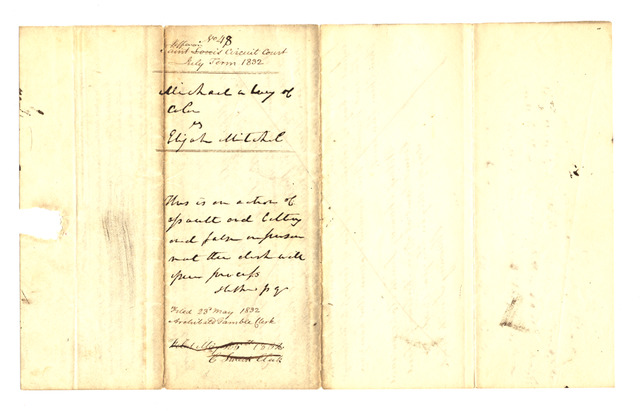 No. 48
Saint Louis Circuit Court
July Term 1832
Michael a boy of
Color
vs
Elijah Mitchel
This is an action of
assault and battery
and false imprison
ment the clerk will
issue process
p q
Filed 23d May 1832
Archibald Gamble Clerk
1832
Clerk